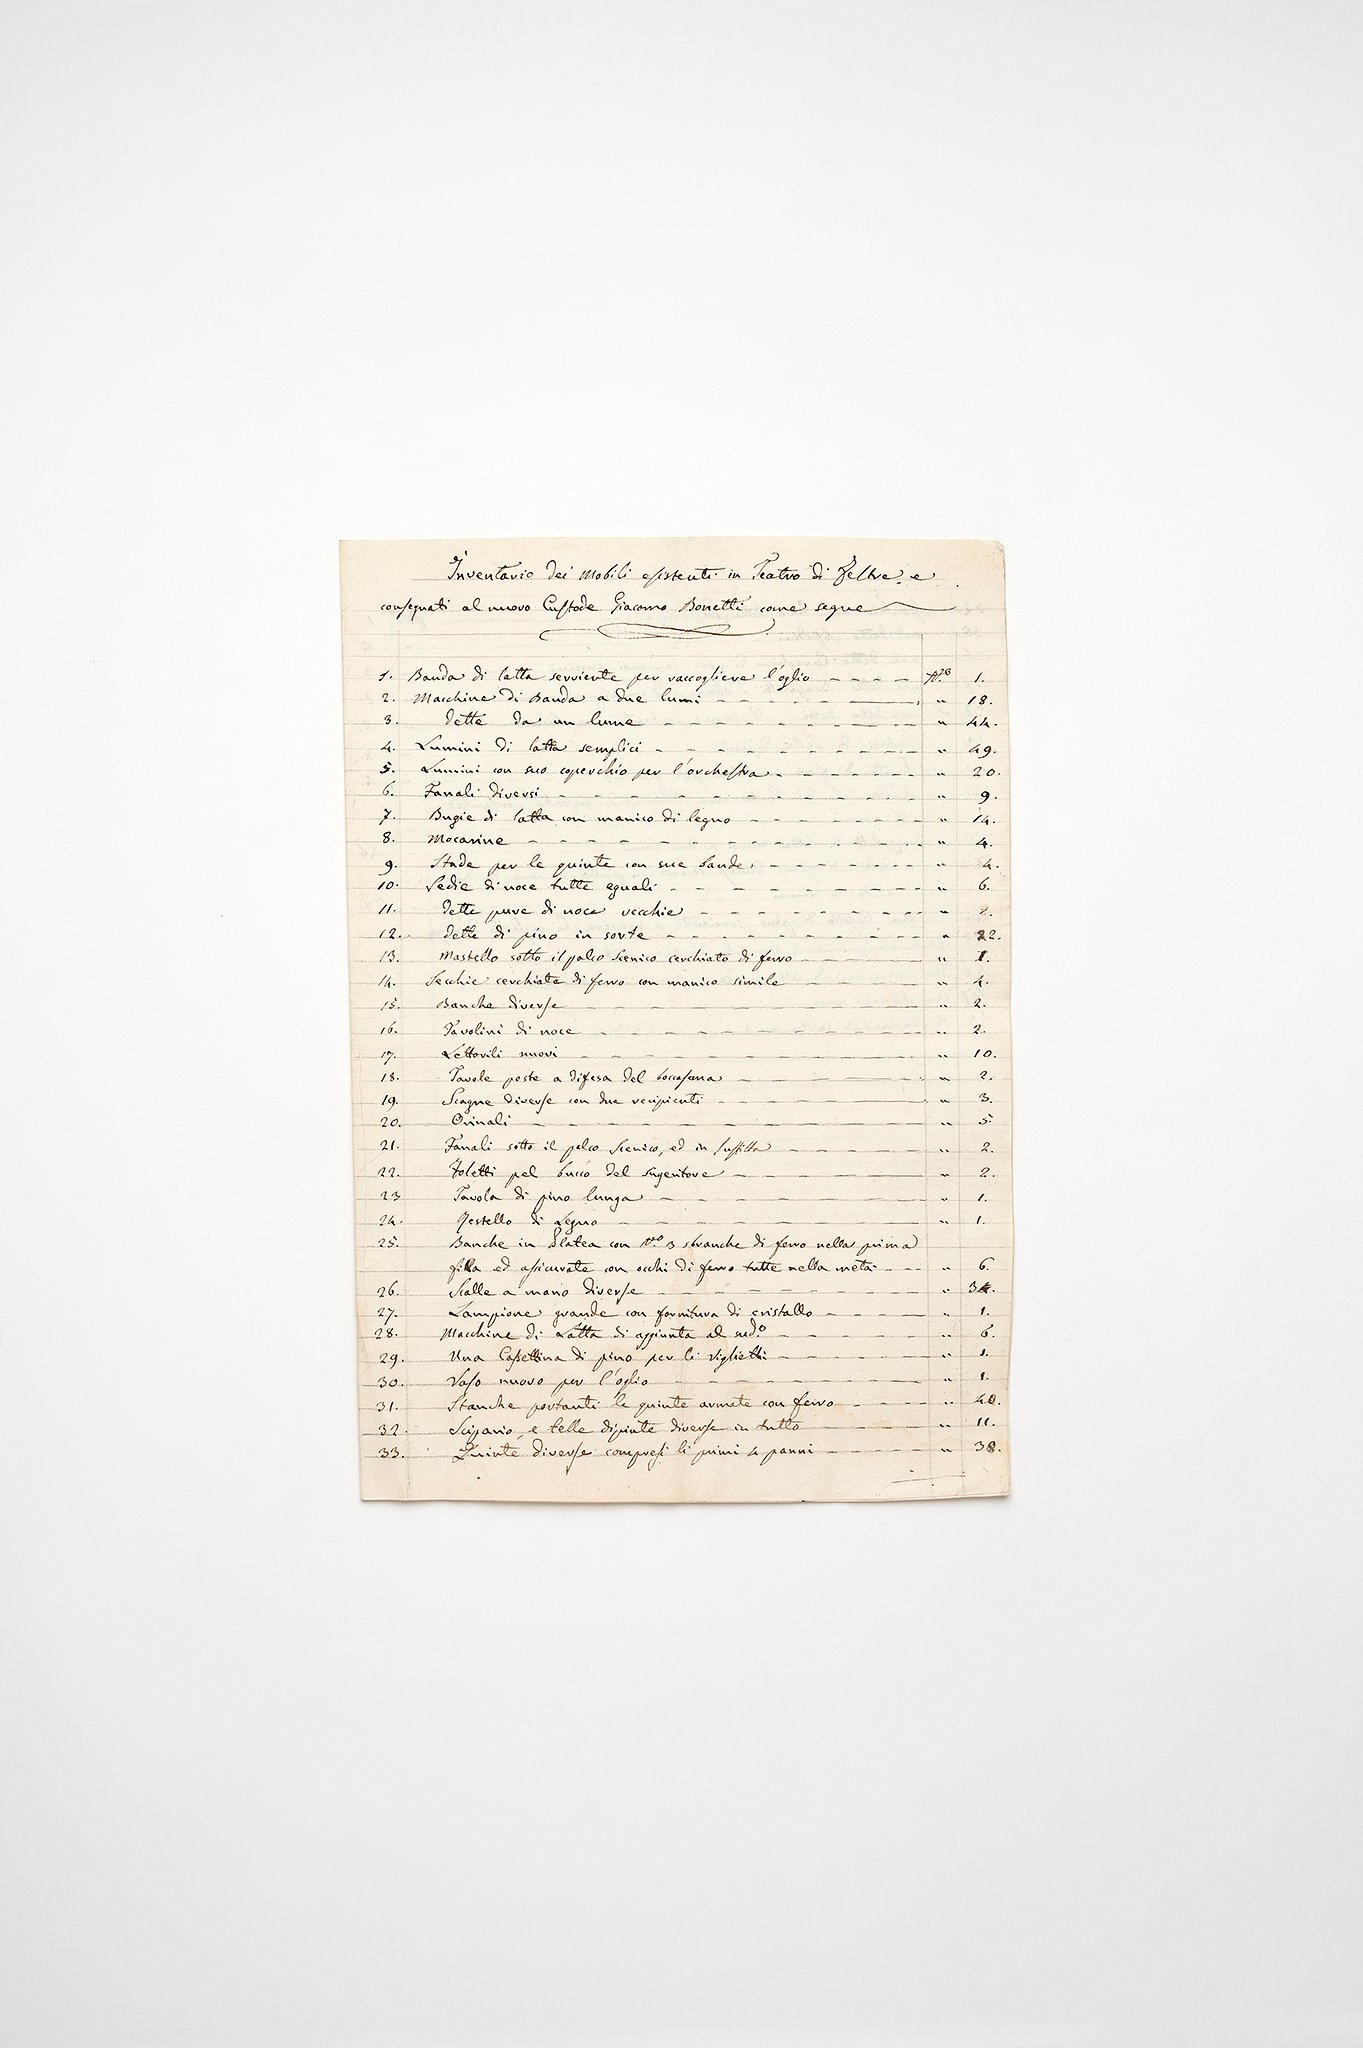 Inventario dei Mobili esistenti in Teatro di Feltre, e
consegnati al nuovo Custode Giacomo Bonetti come segue
1. Banda di latta serviente per raccogliere l'oglio N.º 1.
2. Macchine di Banda a due lumi " 18.
3. dette da un lume " 44.
4. Lumini di latta semplici " 49.
5. Lumini con suo coperchio per l'orchestra " 20.
6. Fanali diversi " 9.
7. Bugie di latta con manico di legno " 14.
8. Mocarine " 4.
9. Stade per le quinte con sue bande " 4.
10. Sedie di noce tutte eguali " 6.
11. dette pure di noce vecchie " 2.
12. dette di pino in sorte " 22.
13. Mastello sotto il palco Scenico cerchiato di ferro " 1.
14. Secchie cerchiate di ferro con manico simile " 4.
15. Banche diverse " 2.
16. Tavolini di noce " 2.
17. Lettorili nuovi " 10.
18. Tavole poste a difesa del boccascena " 2.
19. Scagne diverse con due recipienti " 3.
20. Orinali " 5.
21. Fanali sotto il palco Scenico, ed in soffitta " 2.
22. Foletti pel bucco del Sugeritore " 2.
23 Tavola di pino lunga " 1.
24. Restello di Legno " 1.
25. Banche in Platea con N.º 3 stranche di ferro nella prima
fila ed assicurate con occhi di ferro tutte nella metà " 6.
26. Scalle a mano diverse " 34.
27. Lampione grande con fornitura di cristallo " 1.
28. Macchine di Latta di aggiunta al sud.º " 6.
29. Una Cassettina di pino per li viglietti " 1.
30. Vaso nuovo per l'oglio " 1.
31. Stanche portanti le quinte armate con ferro " 40.
32. Scipario, e telle dipinte diverse in tutto " 11.
33. Quinte diverse compresi li primi 4 panni " 38.